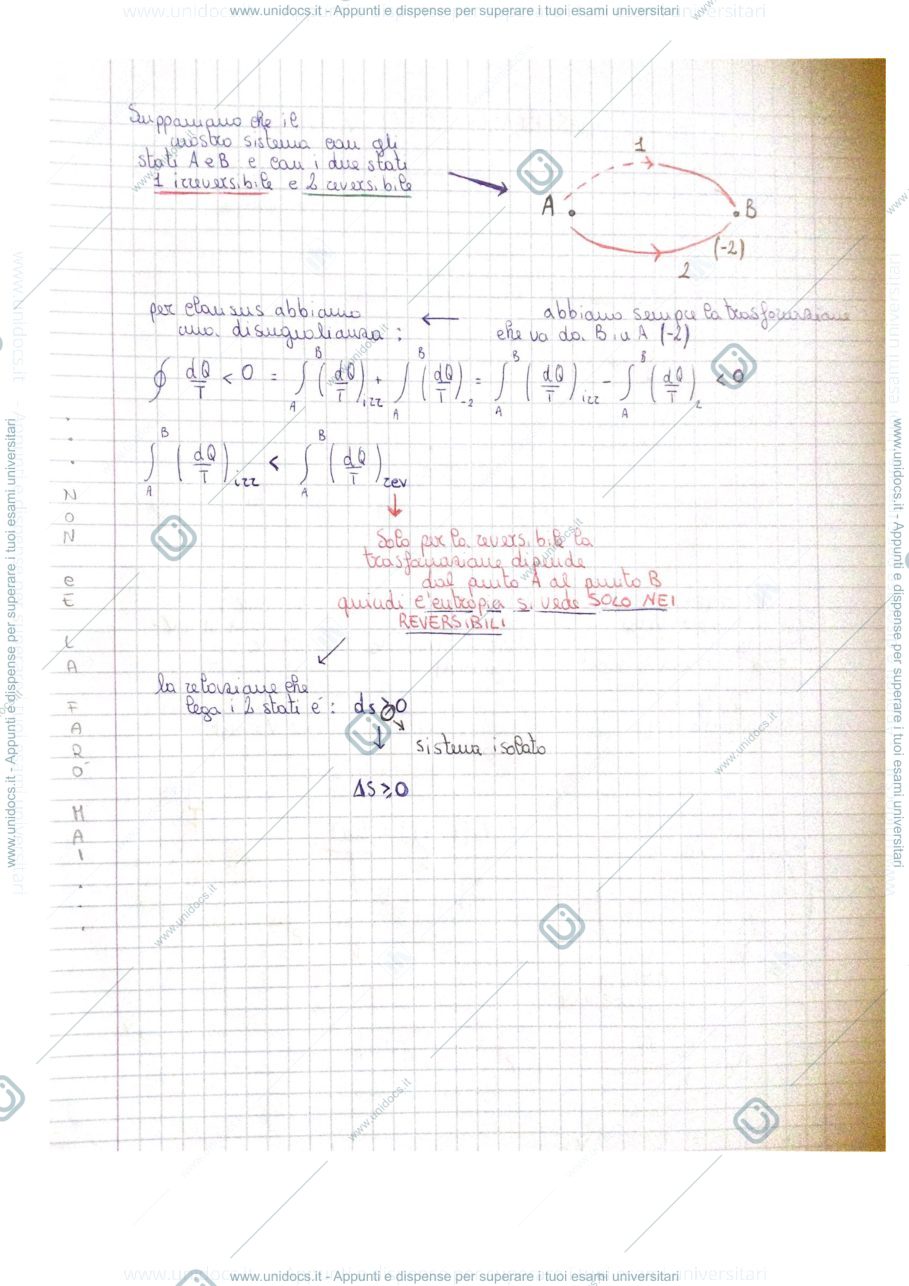 www.unidocs.it - Appunti e dispense per superare i tuoi esami universitari
Supponiamo che il
nostro sistema con gli
stati A e B e con i due stati
1 irreversibile e 2 reversibile
1
A
B
(-2)
2
per Clausus abbiamo
una disuguaglianza :
abbiamo sempre la trasformazione
che va da B a A (-2)
∮ dQ/T < 0 = ∫_A^B (dQ/T)_irr + ∫_A^B (dQ/T)_-2 = ∫_A^B (dQ/T)_irr - ∫_A^B (dQ/T)_2 < 0
∫_A^B (dQ/T)_irr < ∫_A^B (dQ/T)_rev
Solo per la reversibile la
trasformazione dipende
dal punto A al punto B
quindi l'entropia si vede SOLO NEI
REVERSIBILI
la relazione che
lega i 2 stati é : ds ⩾ 0
sistema isolato
ΔS ⩾ 0
. . . NON e E LA FARÒ MAI . . .
www.unidocs.it - Appunti e dispense per superare i tuoi esami universitari
www.unidocs.it - Appunti e dispense per superare i tuoi esami universitari
www.unidocs.it - Appunti e dispense per superare i tuoi esami universitari